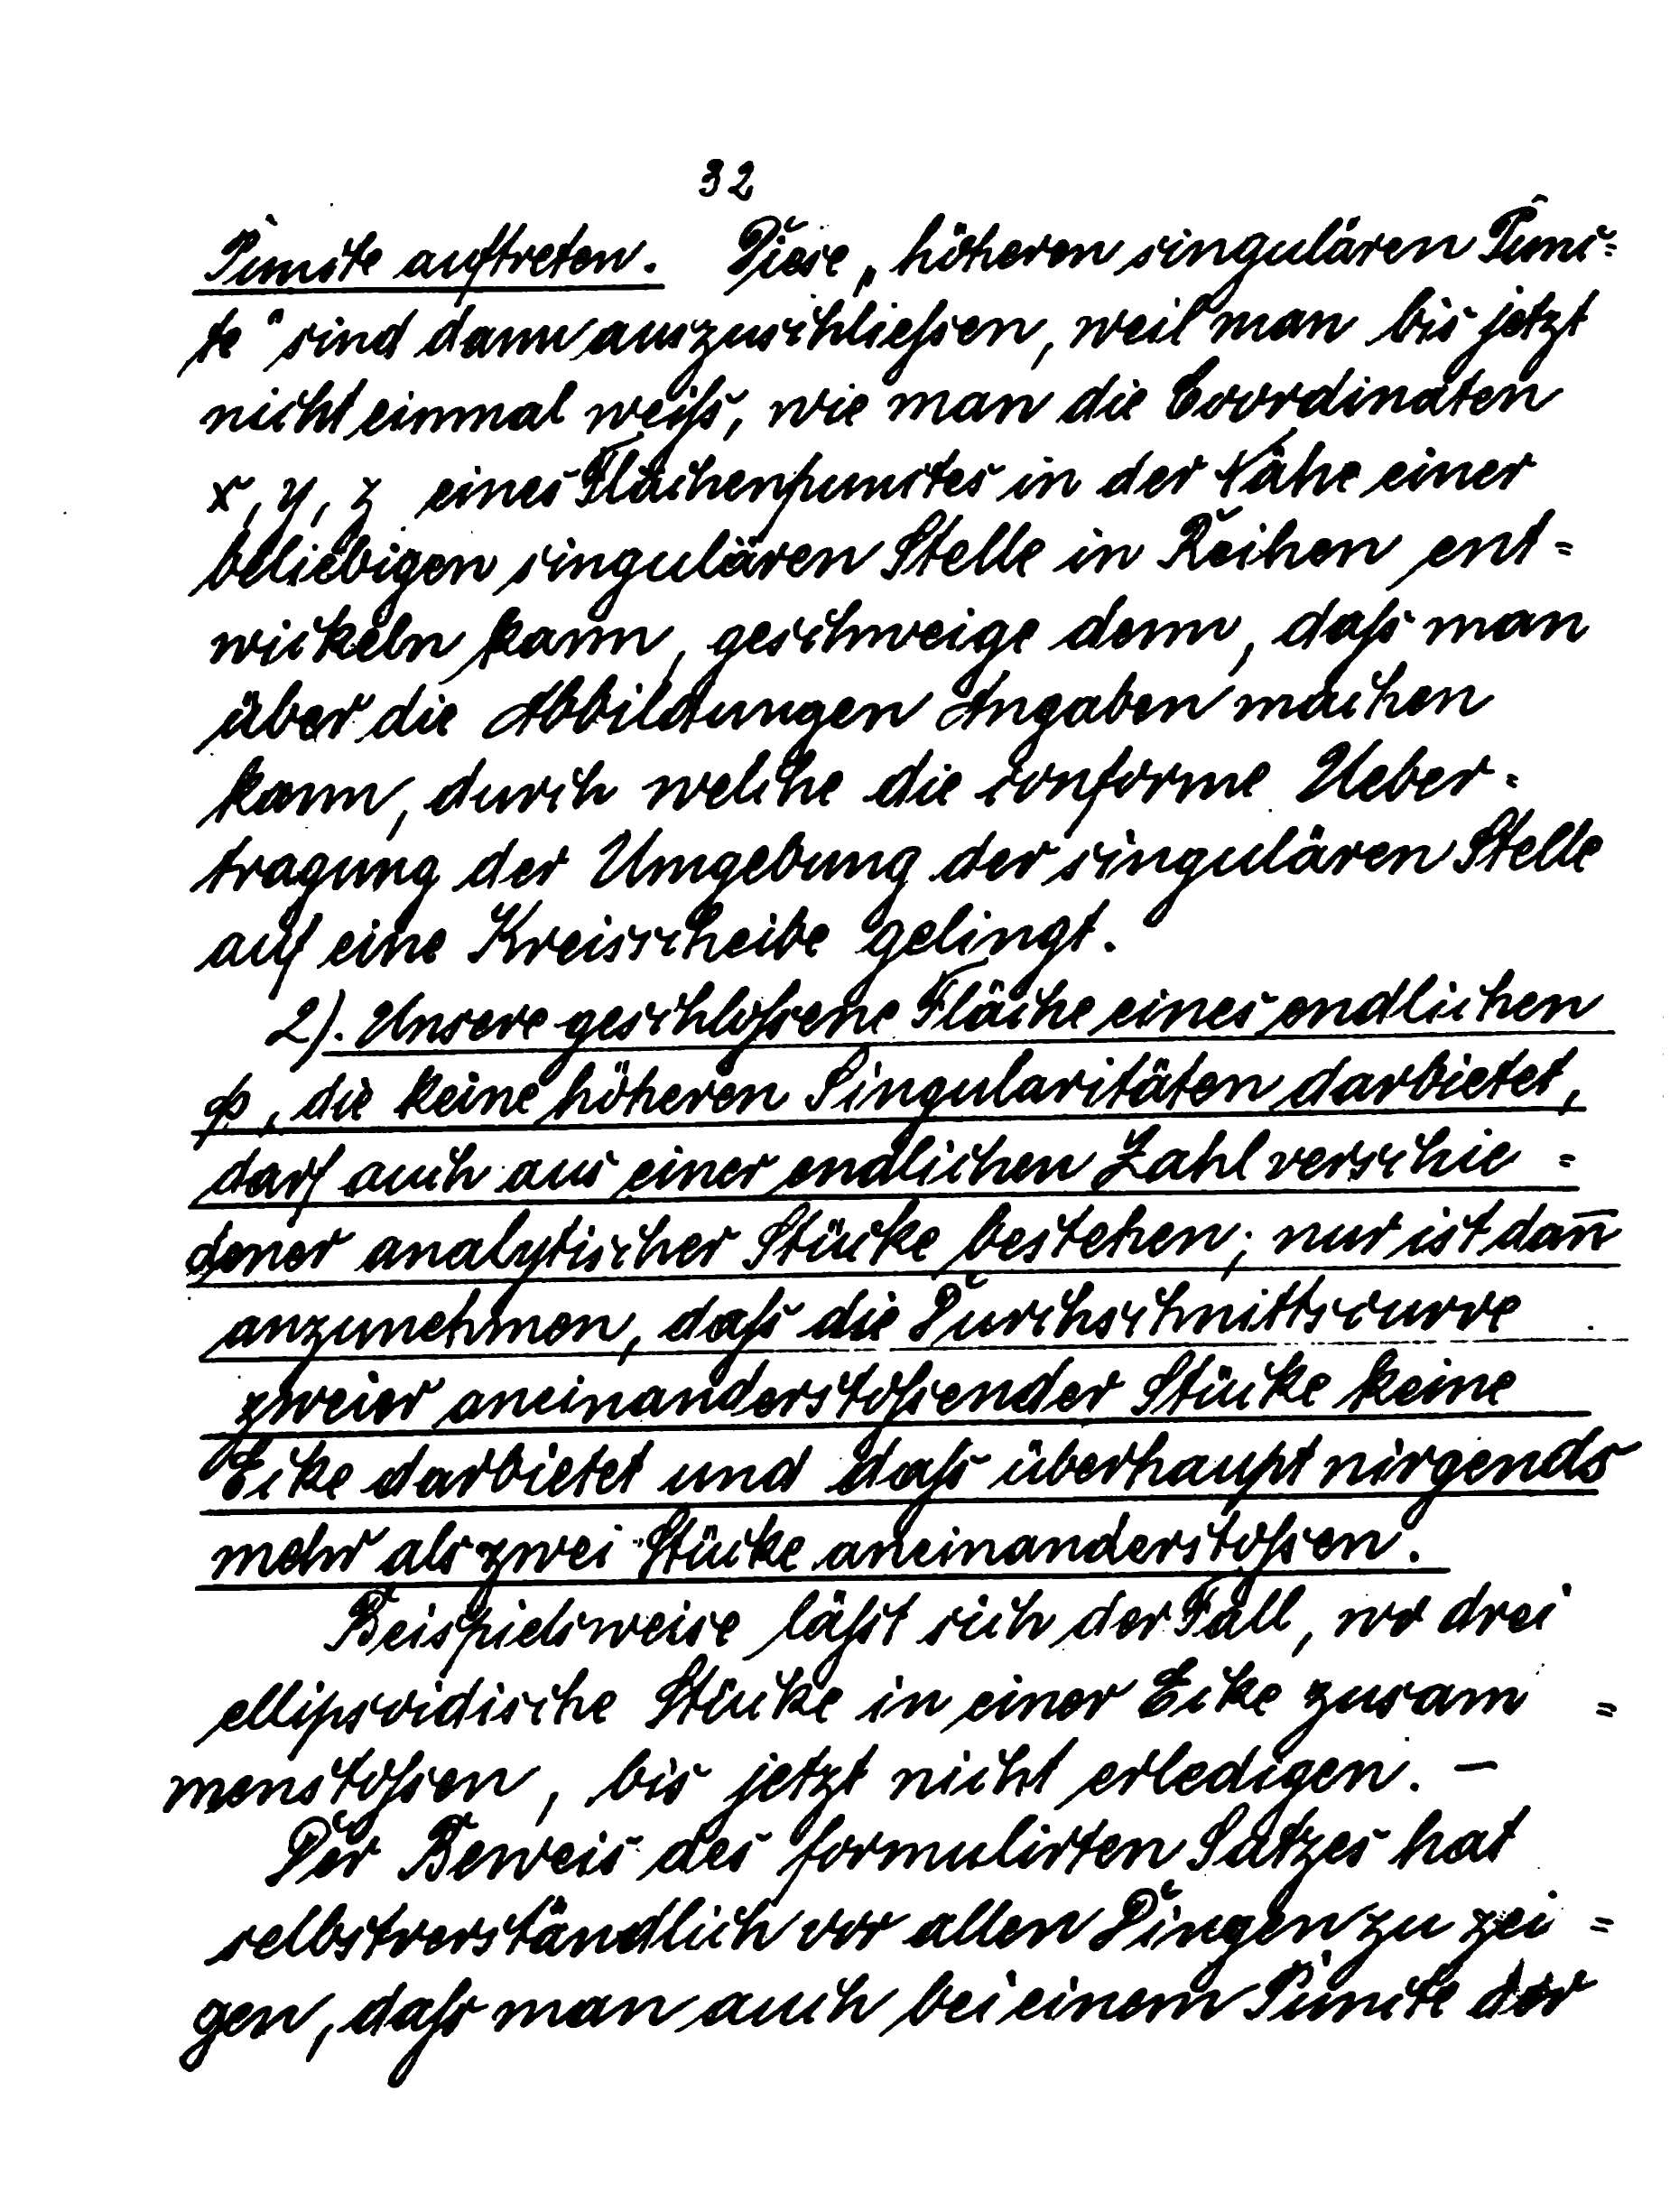 32
Puncte auftreten. Diese „höheren singulären Punc=
te“ sind dann auszuschließen, weil man bis jetzt
nicht einmal weiß, wie man die Coordinaten
x, y, z eines Flächenpunctes in der Nähe einer
beliebigen singulären Stelle in Reihen ent=
wickeln kann, geschweige denn, daß man
über die Abbildungen Angaben machen
kann, durch welche die conforme Ueber=
tragung der Umgebung der singulären Stelle
auf eine Kreisscheibe gelingt.
2). Unsere geschloßene Fläche eines endlichen
p, die keine höheren Singularitäten darbietet,
darf auch aus einer endlichen Zahl verschie=
dener analytischer Stücke bestehen; nur ist dan̄
anzunehmen, daß die Durchschnittscurve
zweier aneinanderstoßender Stücke keine
Ecke darbietet und daß überhaupt nirgends
mehr als zwei Stücke aneinanderstoßen.
Beispielsweise läßt sich der Fall, wo drei
ellipsoidische Stücke in einer Ecke zusam=
menstoßen, bis jetzt nicht erledigen. –
Der Beweis des formulirten Satzes hat
selbstverständlich vor allen Dingen zu zei=
gen, daß man auch bei einem Puncte der